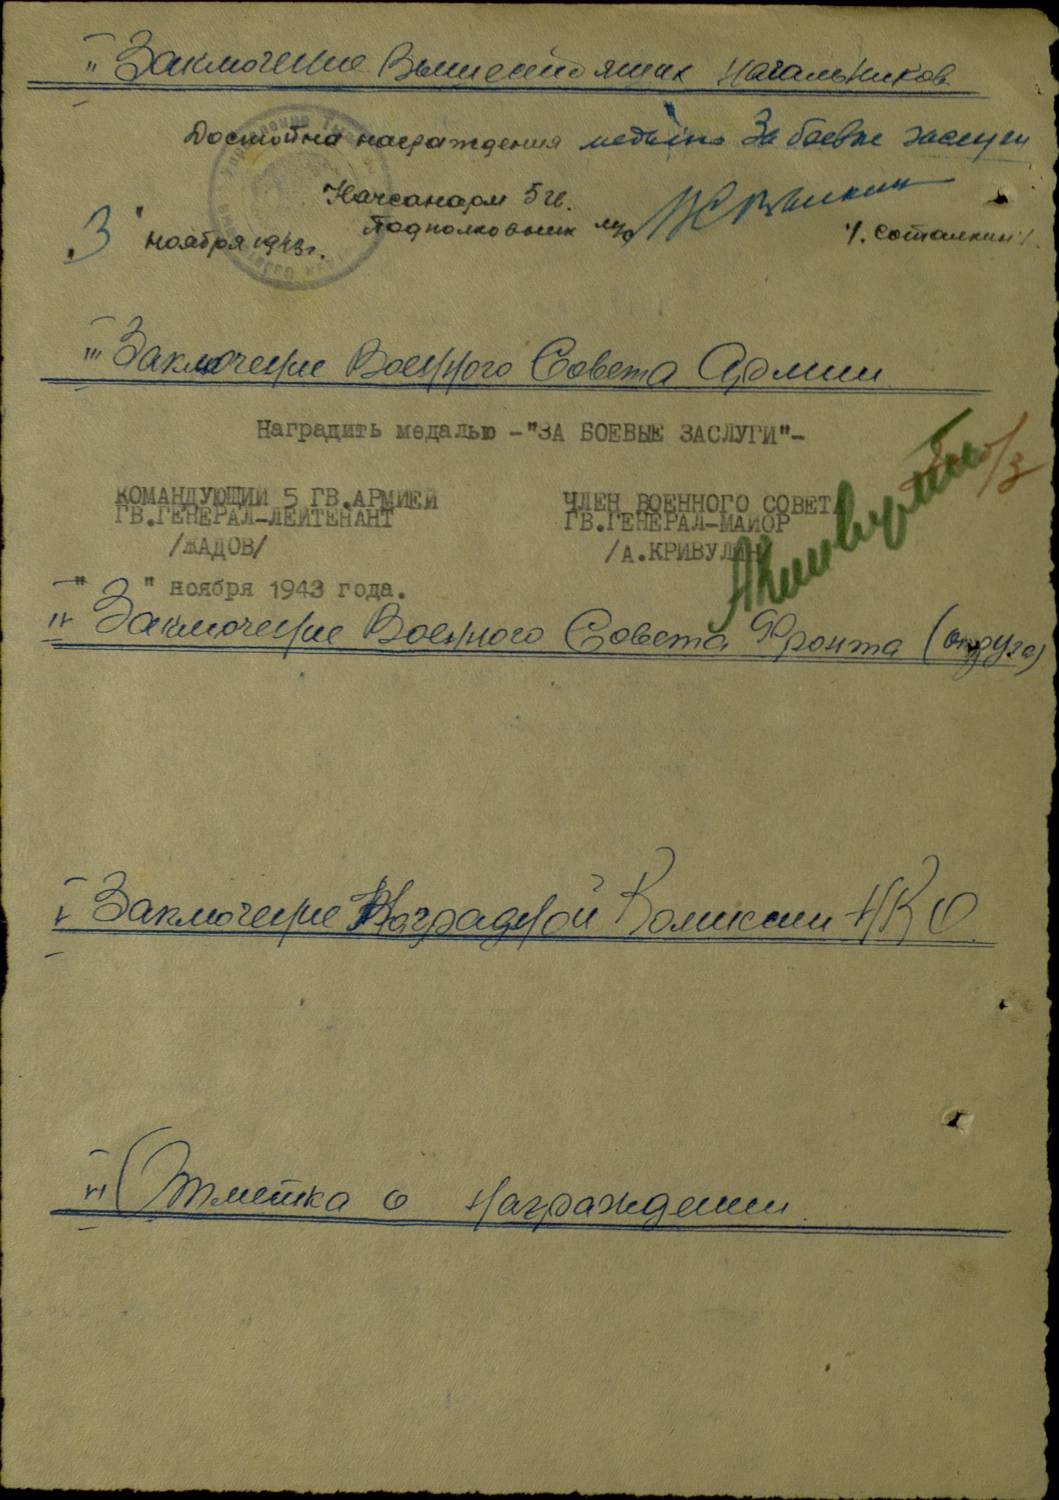 II Заключение Вышестоящих начальников
Достойна награждения медалью За боевые заслуги
Начсанарм 5 гв.
Подполковник м/с /. Соталкин/.
"3" ноября 1943 г.
III Заключение Военного Совета Армии
Наградить медалью -"ЗА БОЕВЫЕ ЗАСЛУГИ"-
КОМАНДУЮЩИЙ 5 ГВ.АРМИЕЙ ЧЛЕН ВОЕННОГО СОВЕТА
ГВ.ГЕНЕРАЛ-ЛЕЙТЕНАНТ ГВ.ГЕНЕРАЛ-МАЙОР
/ЖАДОВ/ /А.КРИВУЛИН
" " ноября 1943 года.
IV Заключение Военного Совета Фронта (округа)
V Заключение Наградной Комиссии НКО.
VI Отметка о награждении.